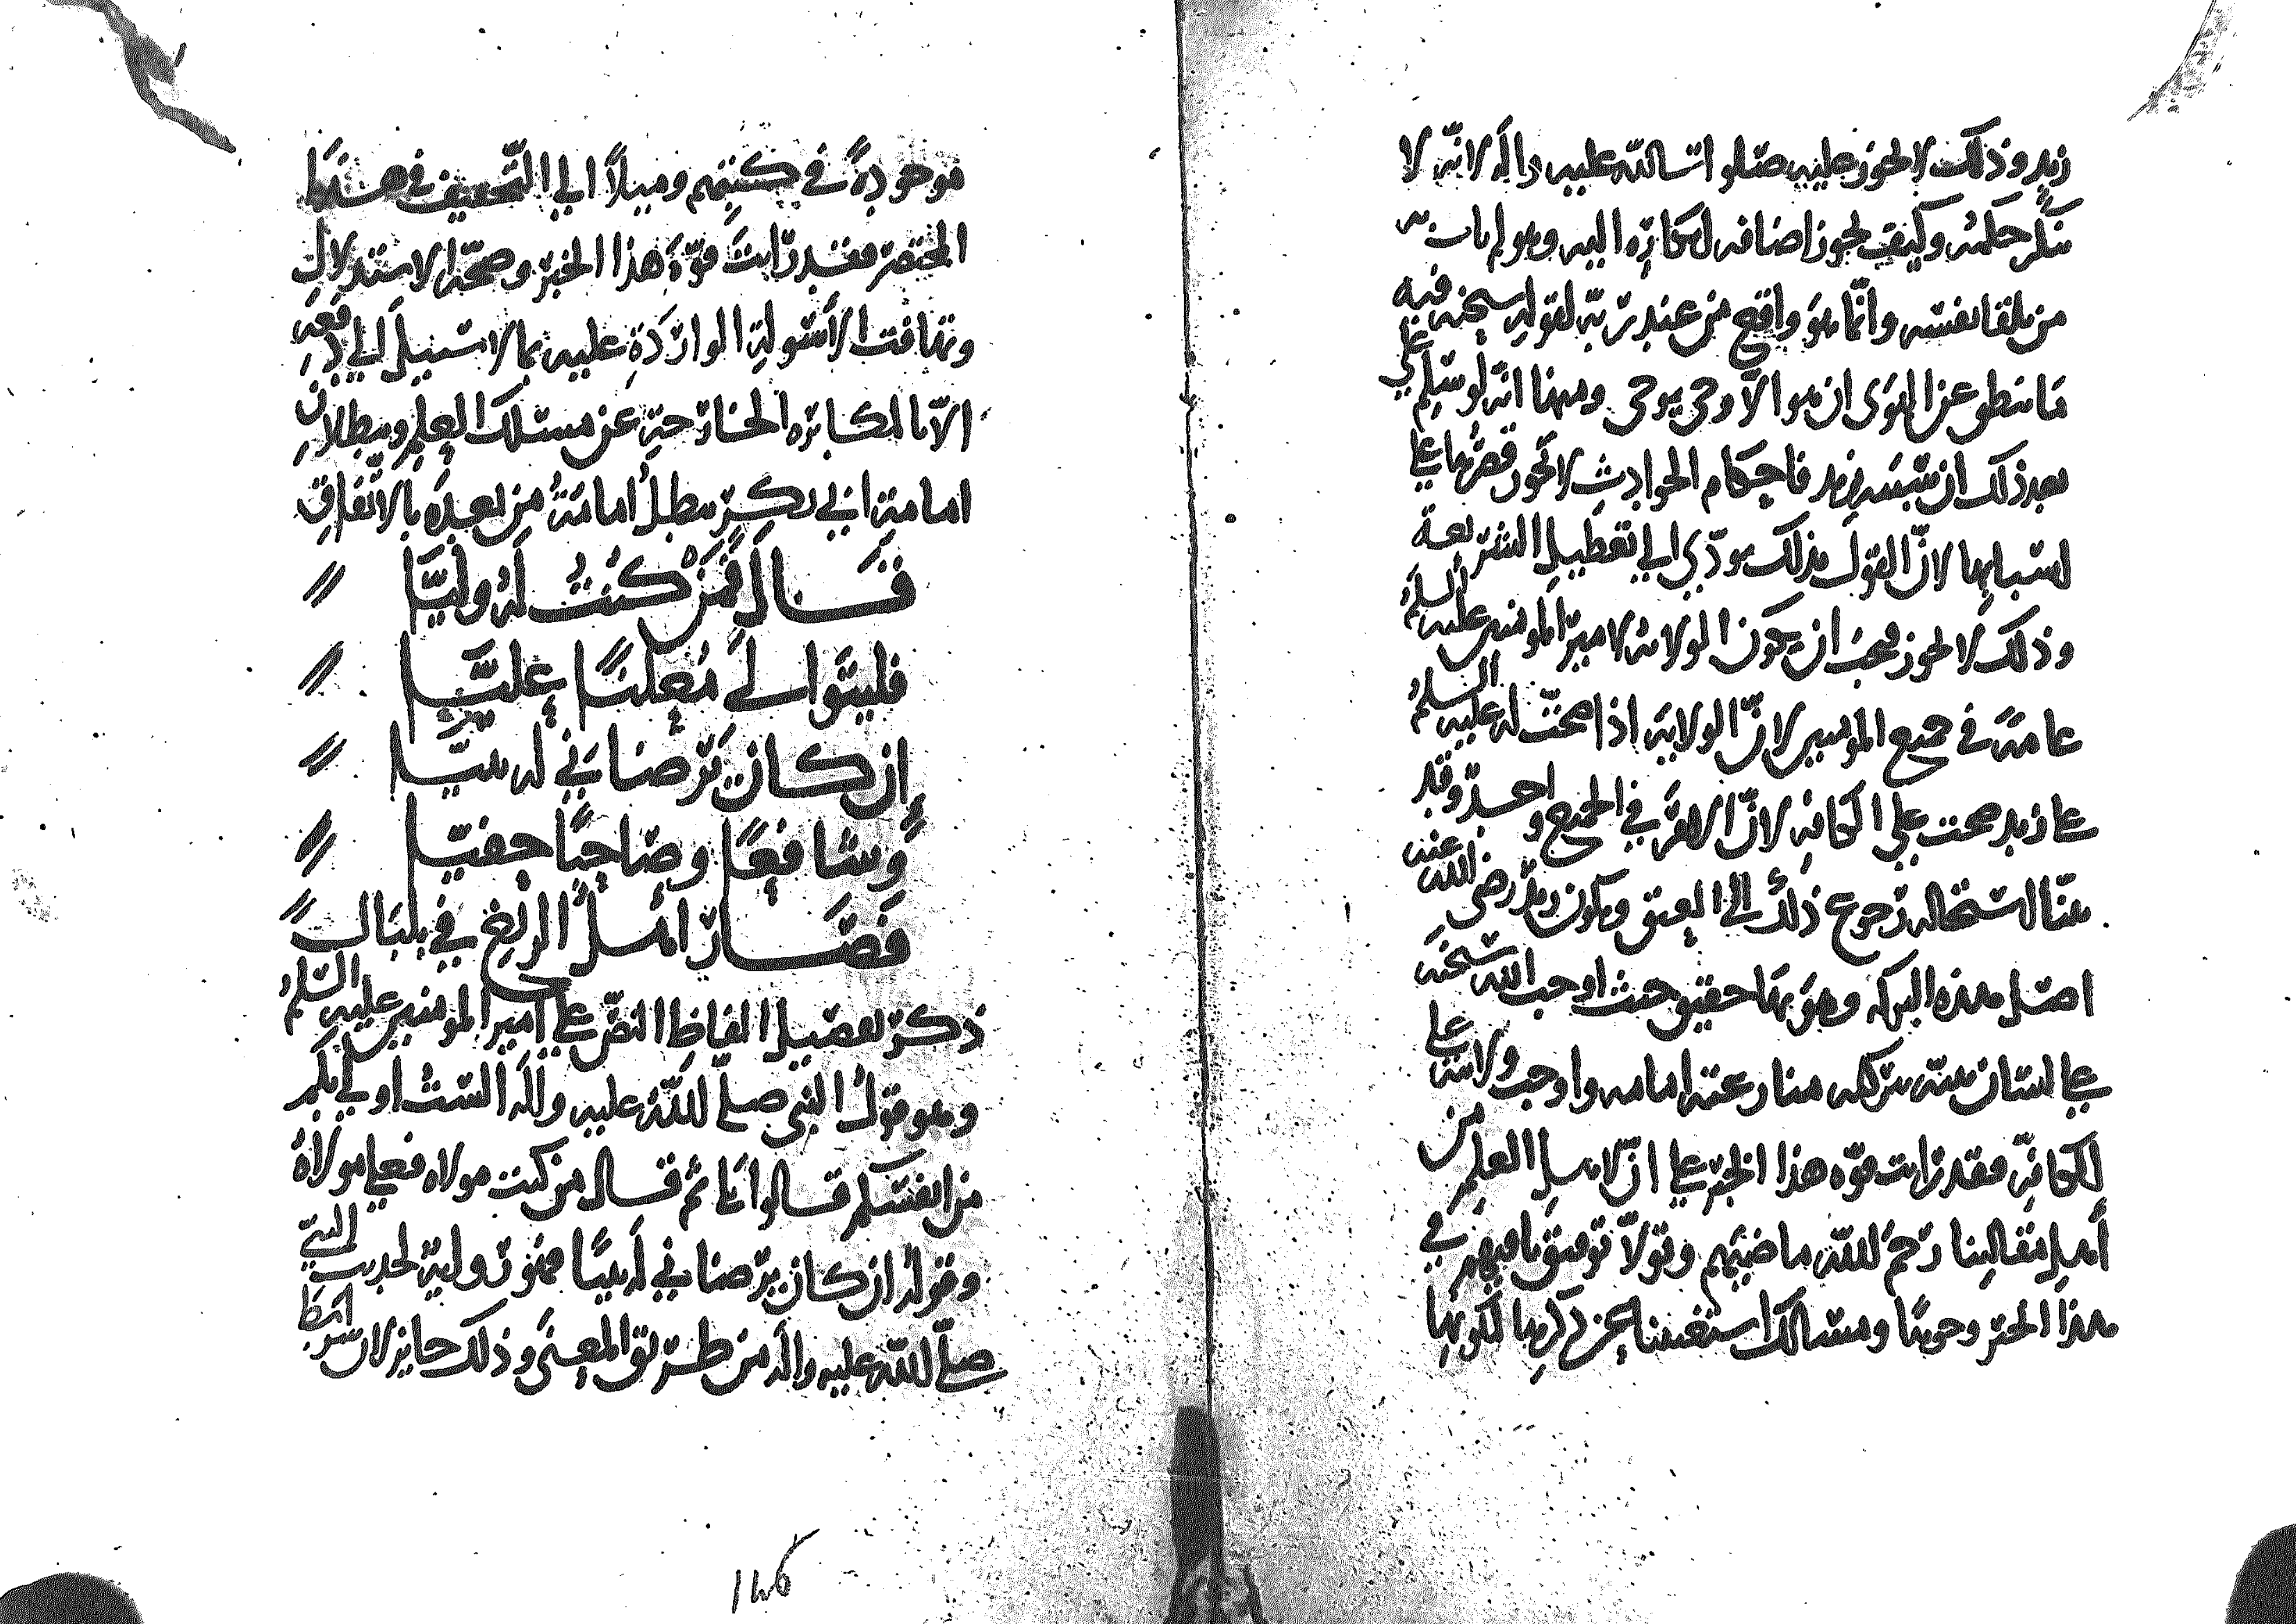 زيد وذلك لا يجوز عليه صلوات الله عليه واله لانه لا
ينكر حكمته وكيف يجوز اضافة المكابرة اليه وهو لم يات
من تلقا نفسه وانما هو واقع من عند ربه لقوله سبحنه فيه
ما ينطق عن الهوى ان هو الا وحي يوحى ومنها انه لو سلم على
بعد ذلك ان سببه زيد فاحكام الحوادث لا يجوز قصرها على
اسبابها لان القول بذلك يودي الى تعطيل الشريعة
وذلك لا يجوز فيجب ان يكون الولاية لامير المومنين عليه السلم
عامة في جميع المومنين لان الولاية اذا صحت له عليه السلم
على زيد صحت على الكافة لان الامر في الجميع واحد وقد
بينا استحالة رجوع ذلك الى العتق ويكون زيد رضي الله عنه
اصل هذه البركة وهو بها حقيق حيث اوجب الله سبحنه
على لسان نبيه بتركه منازعته امامه واوجب ولايته على
الكافة فقد رايت قوة هذا الخبر على ان لاهل العلم من
أهل مقالتنا رحم الله ماضيهم وتولا توفيق باقيهم في
هذا الخبر وجوها ومسالك استغنينا عن ذكرها لكونها
موجودة في كتبهم وميلا الى التخفيف في هذا
المختصر فقد رايت قوة هذا الخبر وصحة الاستدلال
وتهافت الأسولة الواردة عليه بما لا سبيل الى دفعه
الا بالمكابرة الخارجة عن مسلك العلم وببطلان
امامة ابي بكر تبطل امامة من بعده بالاتفاق
فقال فمن كنت له وليا
فليتوالى معلنا عليا
ان كان يرضاني له نبيا
وشافعا وصاحبا حفيا
فصار اهل الزيغ في بلبال
ذكر تفصيل الفاظ النص على امير المومنين عليه السلم
وهو قول النبي صلى الله عليه واله الست اولى بكم
من انفسكم قالوا بلى ثم قال من كنت مولاه فعلي مولاه
وقوله ان كان يرضاني له نبيا فهو رواية لحديث النبي
صلى الله عليه واله من طريق المعنى وذلك جايز لان شرايط
146